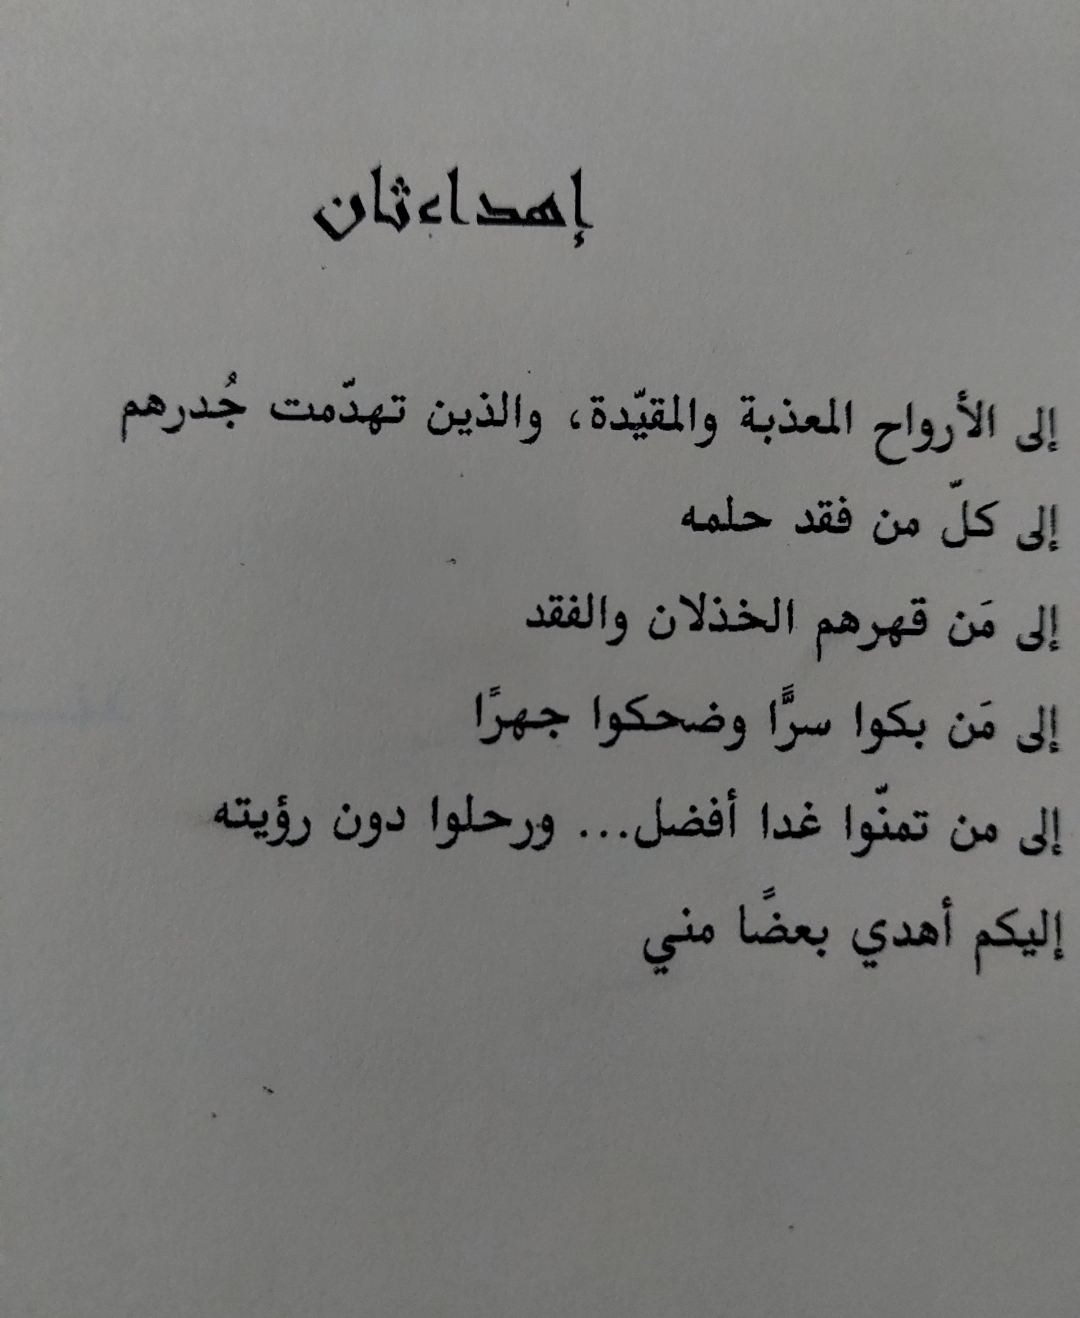 إهداء ثان
إلى الأرواح المعذبة والمقيّدة، والذين تهدّمت جُدرهم
إلى كلّ من فقد حلمه
إلى مَن قهرهم الخذلان والفقد
إلى مَن بكوا سرًّا وضحكوا جهرًا
إلى من تمنّوا غدا أفضل... ورحلوا دون رؤيته
إليكم أهدي بعضًا مني